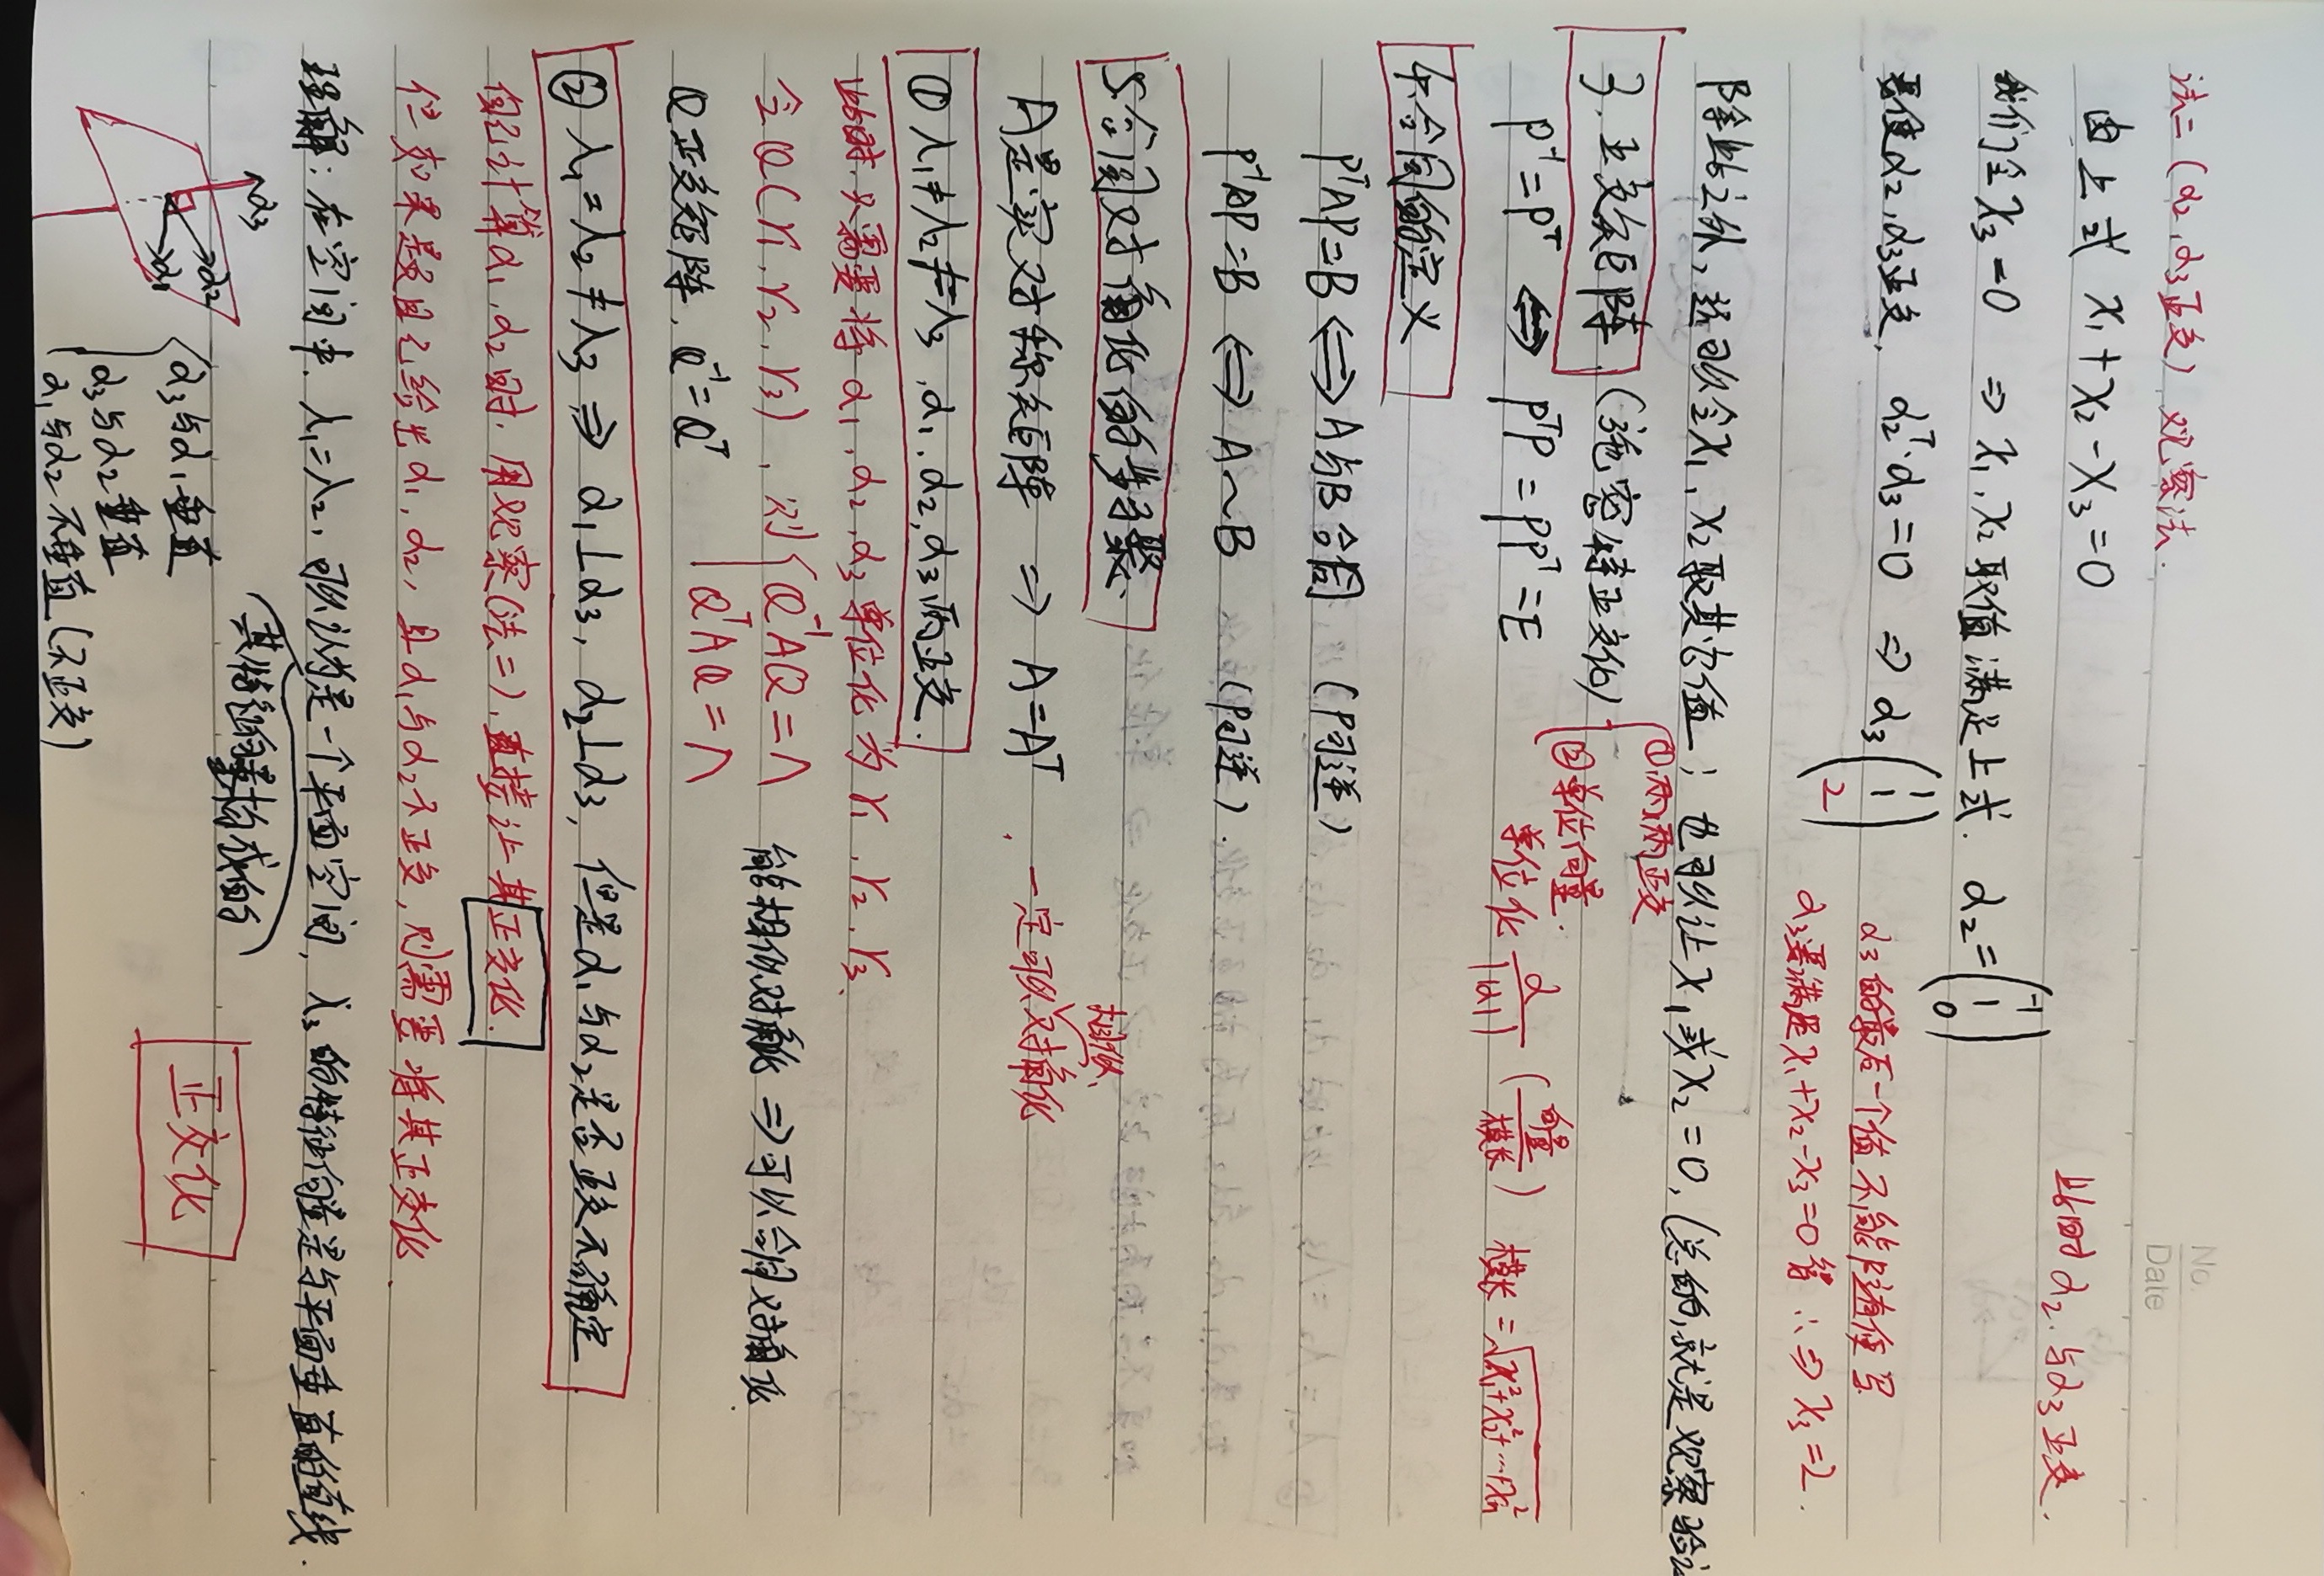 No.
Date
法二(α2,α3正交) 观察法.
由上式 x1+x2-x3=0
此时α2.与α3正交.
我们令x3=0 ⇒ x1,x2取值满足上式. α2=(-1 1 0)
要使α2,α3正交, α2^T·α3=0 ⇒ α3(1 1 2)
α3的最后一个值不能随便写
α3要满足x1+x2-x3=0 ∴⇒ x3=2.
除此之外,还可以令x1,x2取其它值; 也可以让x1或x2=0,(总的,就是观察验
3.正交矩阵.(施密特正交化) ①两两正交
②单位向量.
P^-1=P^T ⟺ P^TP=PP^T=E
单位化 α/||α|| (向量/模长) 模长=√(x1^2+x2^2+…+xn^2)
4.合同的定义
P^TAP=B ⟺ A与B合同 (P可逆)
P^-1AP=B ⟺ A~B (P可逆).
5.合同对角化的步骤.
相似
A是实对称矩阵 ⇒ A=A^T , 一定可以对角化
①λ1≠λ2≠λ3,α1,α2,α3两正交.
此时.只需要将α1,α2,α3单位化为r1,r2,r3.
令Q(r1,r2,r3),则{Q^-1AQ=Λ 能相似对角化⇒可以合同对角化.
Q正交矩阵,Q^-1=Q^T Q^TAQ=Λ
②λ1=λ2≠λ3 ⇒ α1⊥α3, α2⊥α3, 但是α1与α2是否正交不确定
自己计算α1,α2时.用观察(法二),直接让其正交化.
但如果题目已给出α1,α2,且α1与α2不正交,则需要将其正交化.
理解:在空间中.λ1=λ2,可以认为是一个平面空间,λ3的特征向量是与平面垂直的直线.
其特征向量构成的
α3
α2
α1
α3与α1垂直
α3与α2垂直
α1与α2不垂直(不正交)
正交化